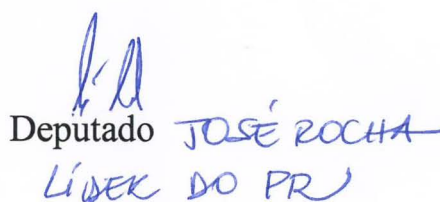 Deputado JOSÉ ROCHA
LÍDER DO PR